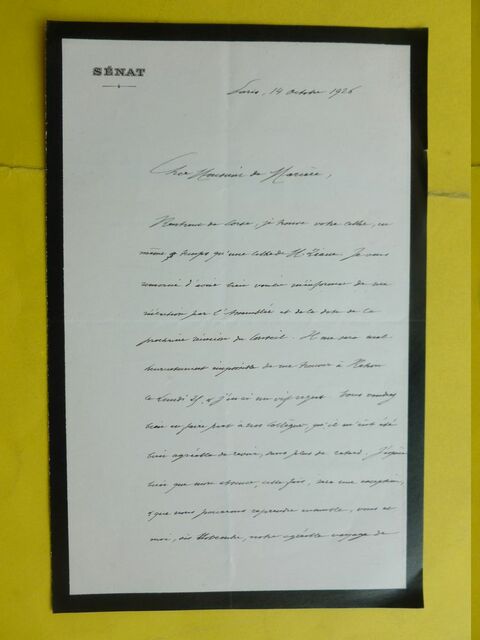 SÉNAT
Paris, 14 octobre 1926
Cher Monsieur de
Rentrant de Corse, je trouve votre lettre, en
même temps qu'une lettre de M.  Je vous
remercie d'avoir bien voulu m'informer de ma
réélection par l'Assemblée et de la date de la
prochaine réunion du Conseil. Il me sera mal-
heureusement impossible de me trouver à
le Lundi 25, & j'en ai un vif regret. Vous voudrez
bien en faire part à nos collègues, qu'il m'eût été
bien agréable de revoir, sans plus de retard. J'espère
bien que mon absence, cette fois, sera une exception,
& que nous pourrons reprendre ensemble, vous et
moi, dès Novembre, notre agréable voyage de